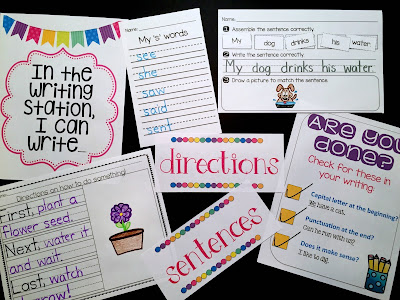 In the
writing
station,
I can
write...
Name
My 's' words
see
she
saw
said
sent
Name
1 Assemble the sentence correctly.
My dog drinks his water
2 Write the sentence correctly.
My dog drinks his water.
3 Draw a picture to match the sentence.
Directions on how to do something!
First, plant a
flower seed.
Next, water it
and wait.
Last, watch
grow!
directions
sentences
ARE YOU
DONE?
Check for these in
your writing.
Capital letter at the beginning?
We have a cat.
Punctuation at the end?
Can he run with us?
Does it make sense?
I like to dig.